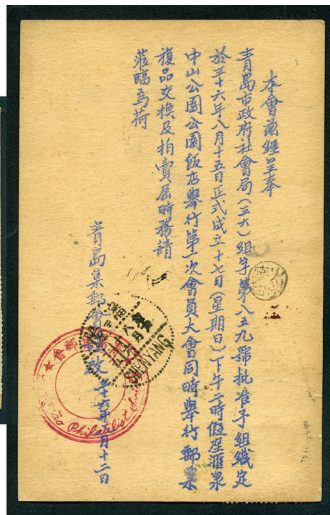 本會茲經呈奉
青島市政府社會局(三六)組字第八五九號批准予組織定
於三十六年八月十五日正式成立十七日(星期日)下午二時假座滙泉
中山公園公園飯店舉行第一次會員大會同時舉行郵票
複品交換及拍賣屆時務請
蒞臨為荷
青島集郵會謹啟 三十六年八月十二日
Philatelist